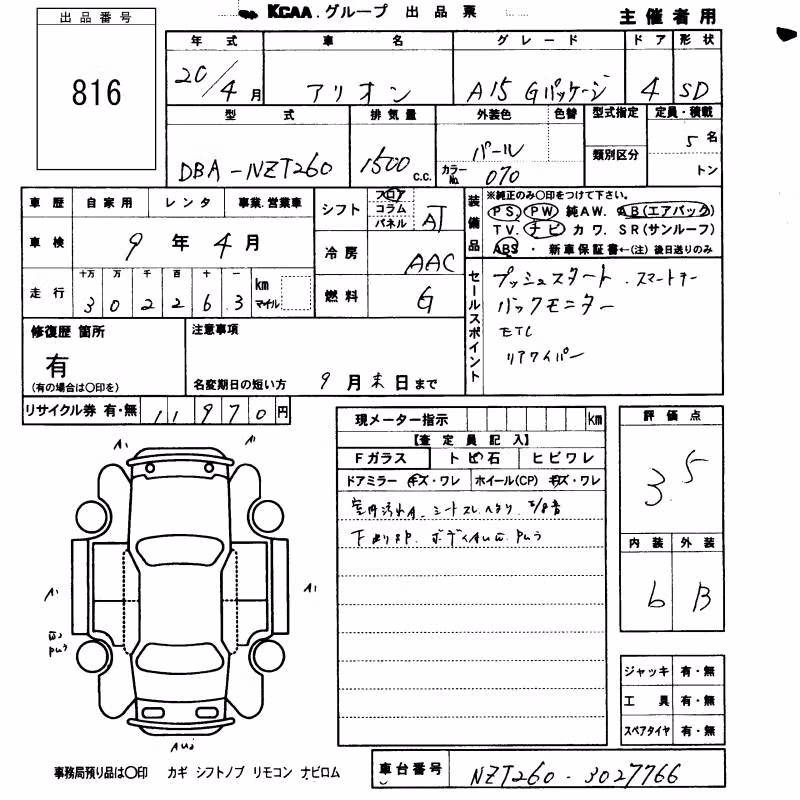 KCAA.グループ 出品票
主催者用
出品番号
816
年式 車名 グレード ドア 形状
20/4月 アリオン A15 Gパッケージ 4 SD
型式 排気量 外装色 色替 型式指定 定員・積載
DBA-NZT260 1500 c.c. パール 5名
カラーNo. 070 類別区分 トン
車歴 自家用 レンタ 事業.営業車
車検 9年4月
走行 十万 万 千 百 十 一 km マイル
3 0 2 2 6 3
シフト フロア コラム パネル AT
冷房 AAC
燃料 G
装備品
※純正のみ○印をつけて下さい。
PS. PW 純AW. AB(エアバック)
TV. ナビ カワ. SR(サンルーフ)
ABS. 新車保証書←(注)後日送りのみ
セールスポイント
プッシュスタート.スマートキー
バックモニター
ETC
リアワイパー
修復歴 箇所
有
(有の場合は○印を)
注意事項
名変期日の短い方 9月末日まで
リサイクル券 有・無 11970円
現メーター指示 km
【査定員記入】
Fガラス トビ石 ヒビワレ
ドアミラー キズ・ワレ ホイール(CP) キズ・ワレ
評価点
3.5
内装 外装
6 B
ジャッキ 有・無
工具 有・無
スペアタイヤ 有・無
A1
A1
A1
事務局預り品は○印 カギ シフトノブ リモコン ナビロム
車台番号 NZT260-3027766